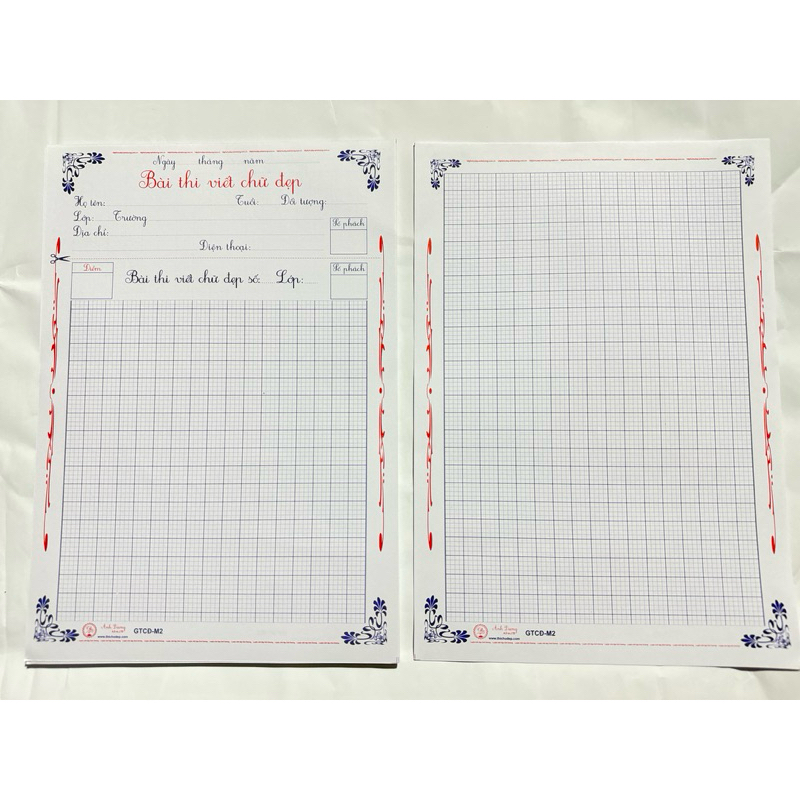 Ngày tháng năm
Bài thi viết chữ đẹp
Họ tên: Tuổi: Dã tượng:
Lớp: Trường
Địa chỉ:
Điện thoại:
Số phách
Điểm
Bài thi viết chữ đẹp số: Lớp:
Số phách
Ánh Dương
GTCĐ-M2
Ánh Dương
GTCĐ-M2